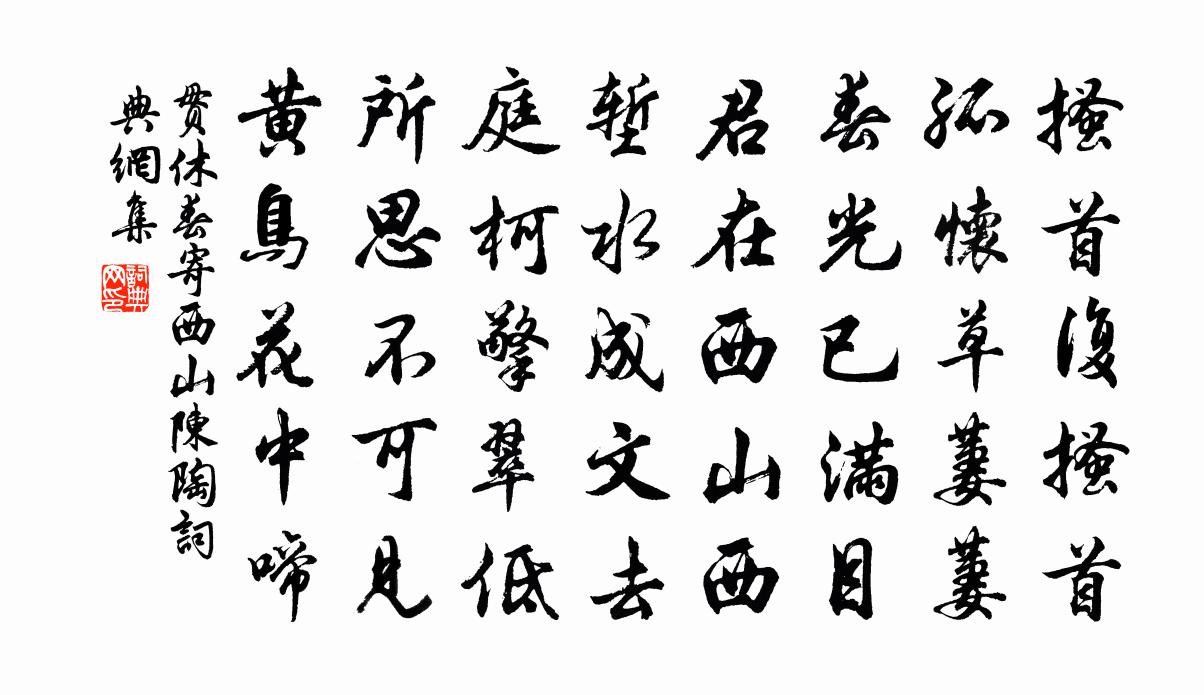 搔首復搔首
孤懷草萋萋
春光已滿目
君在西山西
塹水成文去
庭柯擎翠低
所思不可見
黃鳥花中啼
貫休春寄西山陳陶詞
典網集
詞典
网印